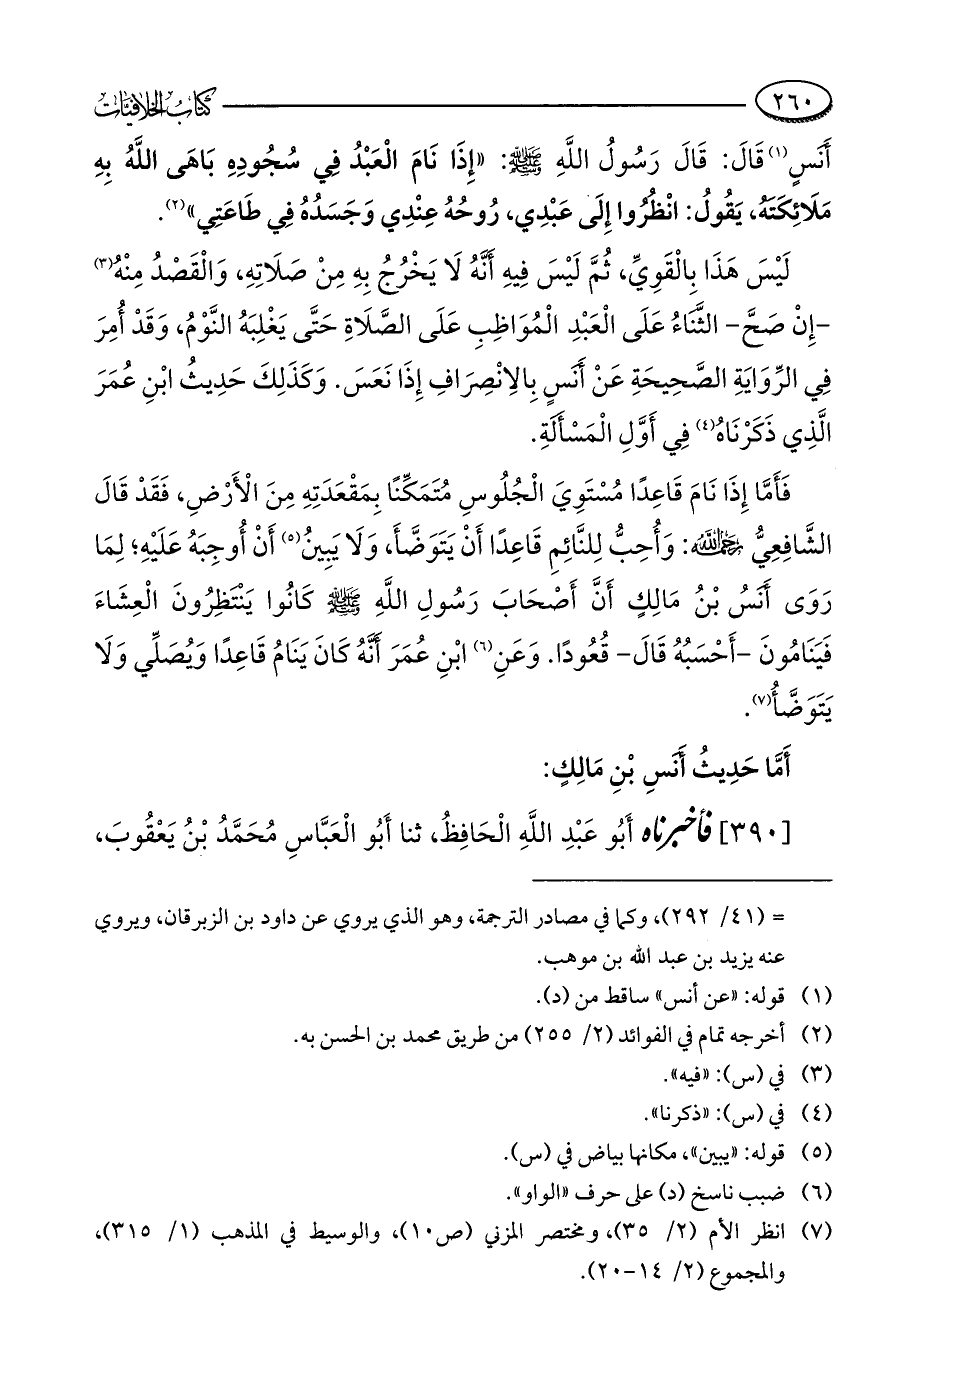 ٢٦٠
كتاب الخلافيات
أَنَسٍ(١) قَالَ: قَالَ رَسُولُ اللَّهِ ﷺ: «إِذَا نَامَ الْعَبْدُ فِي سُجُودِهِ بَاهَى اللَّهُ بِهِ
مَلَائِكَتَهُ، يَقُولُ: انْظُرُوا إِلَى عَبْدِي، رُوحُهُ عِنْدِي وَجَسَدُهُ فِي طَاعَتِي»(٢).
لَيْسَ هَذَا بِالْقَوِيِّ، ثُمَّ لَيْسَ فِيهِ أَنَّهُ لَا يَخْرُجُ بِهِ مِنْ صَلَاتِهِ، وَالْقَصْدُ مِنْهُ(٣)
-إِنْ صَحَّ- الثَّنَاءُ عَلَى الْعَبْدِ الْمُوَاظِبِ عَلَى الصَّلَاةِ حَتَّى يَغْلِبَهُ النَّوْمُ، وَقَدْ أُمِرَ
فِي الرِّوَايَةِ الصَّحِيحَةِ عَنْ أَنَسٍ بِالِانْصِرَافِ إِذَا نَعَسَ. وَكَذَلِكَ حَدِيثُ ابْنِ عُمَرَ
الَّذِي ذَكَرْنَاهُ(٤) فِي أَوَّلِ الْمَسْأَلَةِ.
فَأَمَّا إِذَا نَامَ قَاعِدًا مُسْتَوِيَ الْجُلُوسِ مُتَمَكِّنًا بِمَقْعَدَتِهِ مِنَ الْأَرْضِ، فَقَدْ قَالَ
الشَّافِعِيُّ رَحِمَهُ اللَّهُ: وَأُحِبُّ لِلنَّائِمِ قَاعِدًا أَنْ يَتَوَضَّأَ، وَلَا يَبِينُ(٥) أَنْ أُوجِبَهُ عَلَيْهِ؛ لِمَا
رَوَى أَنَسُ بْنُ مَالِكٍ أَنَّ أَصْحَابَ رَسُولِ اللَّهِ ﷺ كَانُوا يَنْتَظِرُونَ الْعِشَاءَ
فَيَنَامُونَ -أَحْسَبُهُ قَالَ- قُعُودًا. وَعَنِ(٦) ابْنِ عُمَرَ أَنَّهُ كَانَ يَنَامُ قَاعِدًا وَيُصَلِّي وَلَا
يَتَوَضَّأُ(٧).
أَمَّا حَدِيثُ أَنَسِ بْنِ مَالِكٍ:
[٣٩٠] فأخبرناه أَبُو عَبْدِ اللَّهِ الْحَافِظُ، ثنا أَبُو الْعَبَّاسِ مُحَمَّدُ بْنُ يَعْقُوبَ،
= (٤١/ ٢٩٢)، وكما في مصادر الترجمة، وهو الذي يروي عن داود بن الزبرقان، ويروي
عنه يزيد بن عبد الله بن موهب.
(١) قوله: «عن أنس» ساقط من (د).
(٢) أخرجه تمام في الفوائد (٢/ ٢٥٥) من طريق محمد بن الحسن به.
(٣) في (س): «فيه».
(٤) في (س): «ذكرنا».
(٥) قوله: «يبين»، مكانها بياض في (س).
(٦) ضبب ناسخ (د) على حرف «الواو».
(٧) انظر الأم (٢/ ٣٥)، ومختصر المزني (ص١٠)، والوسيط في المذهب (١/ ٣١٥)،
والمجموع (٢/ ١٤-٢٠).